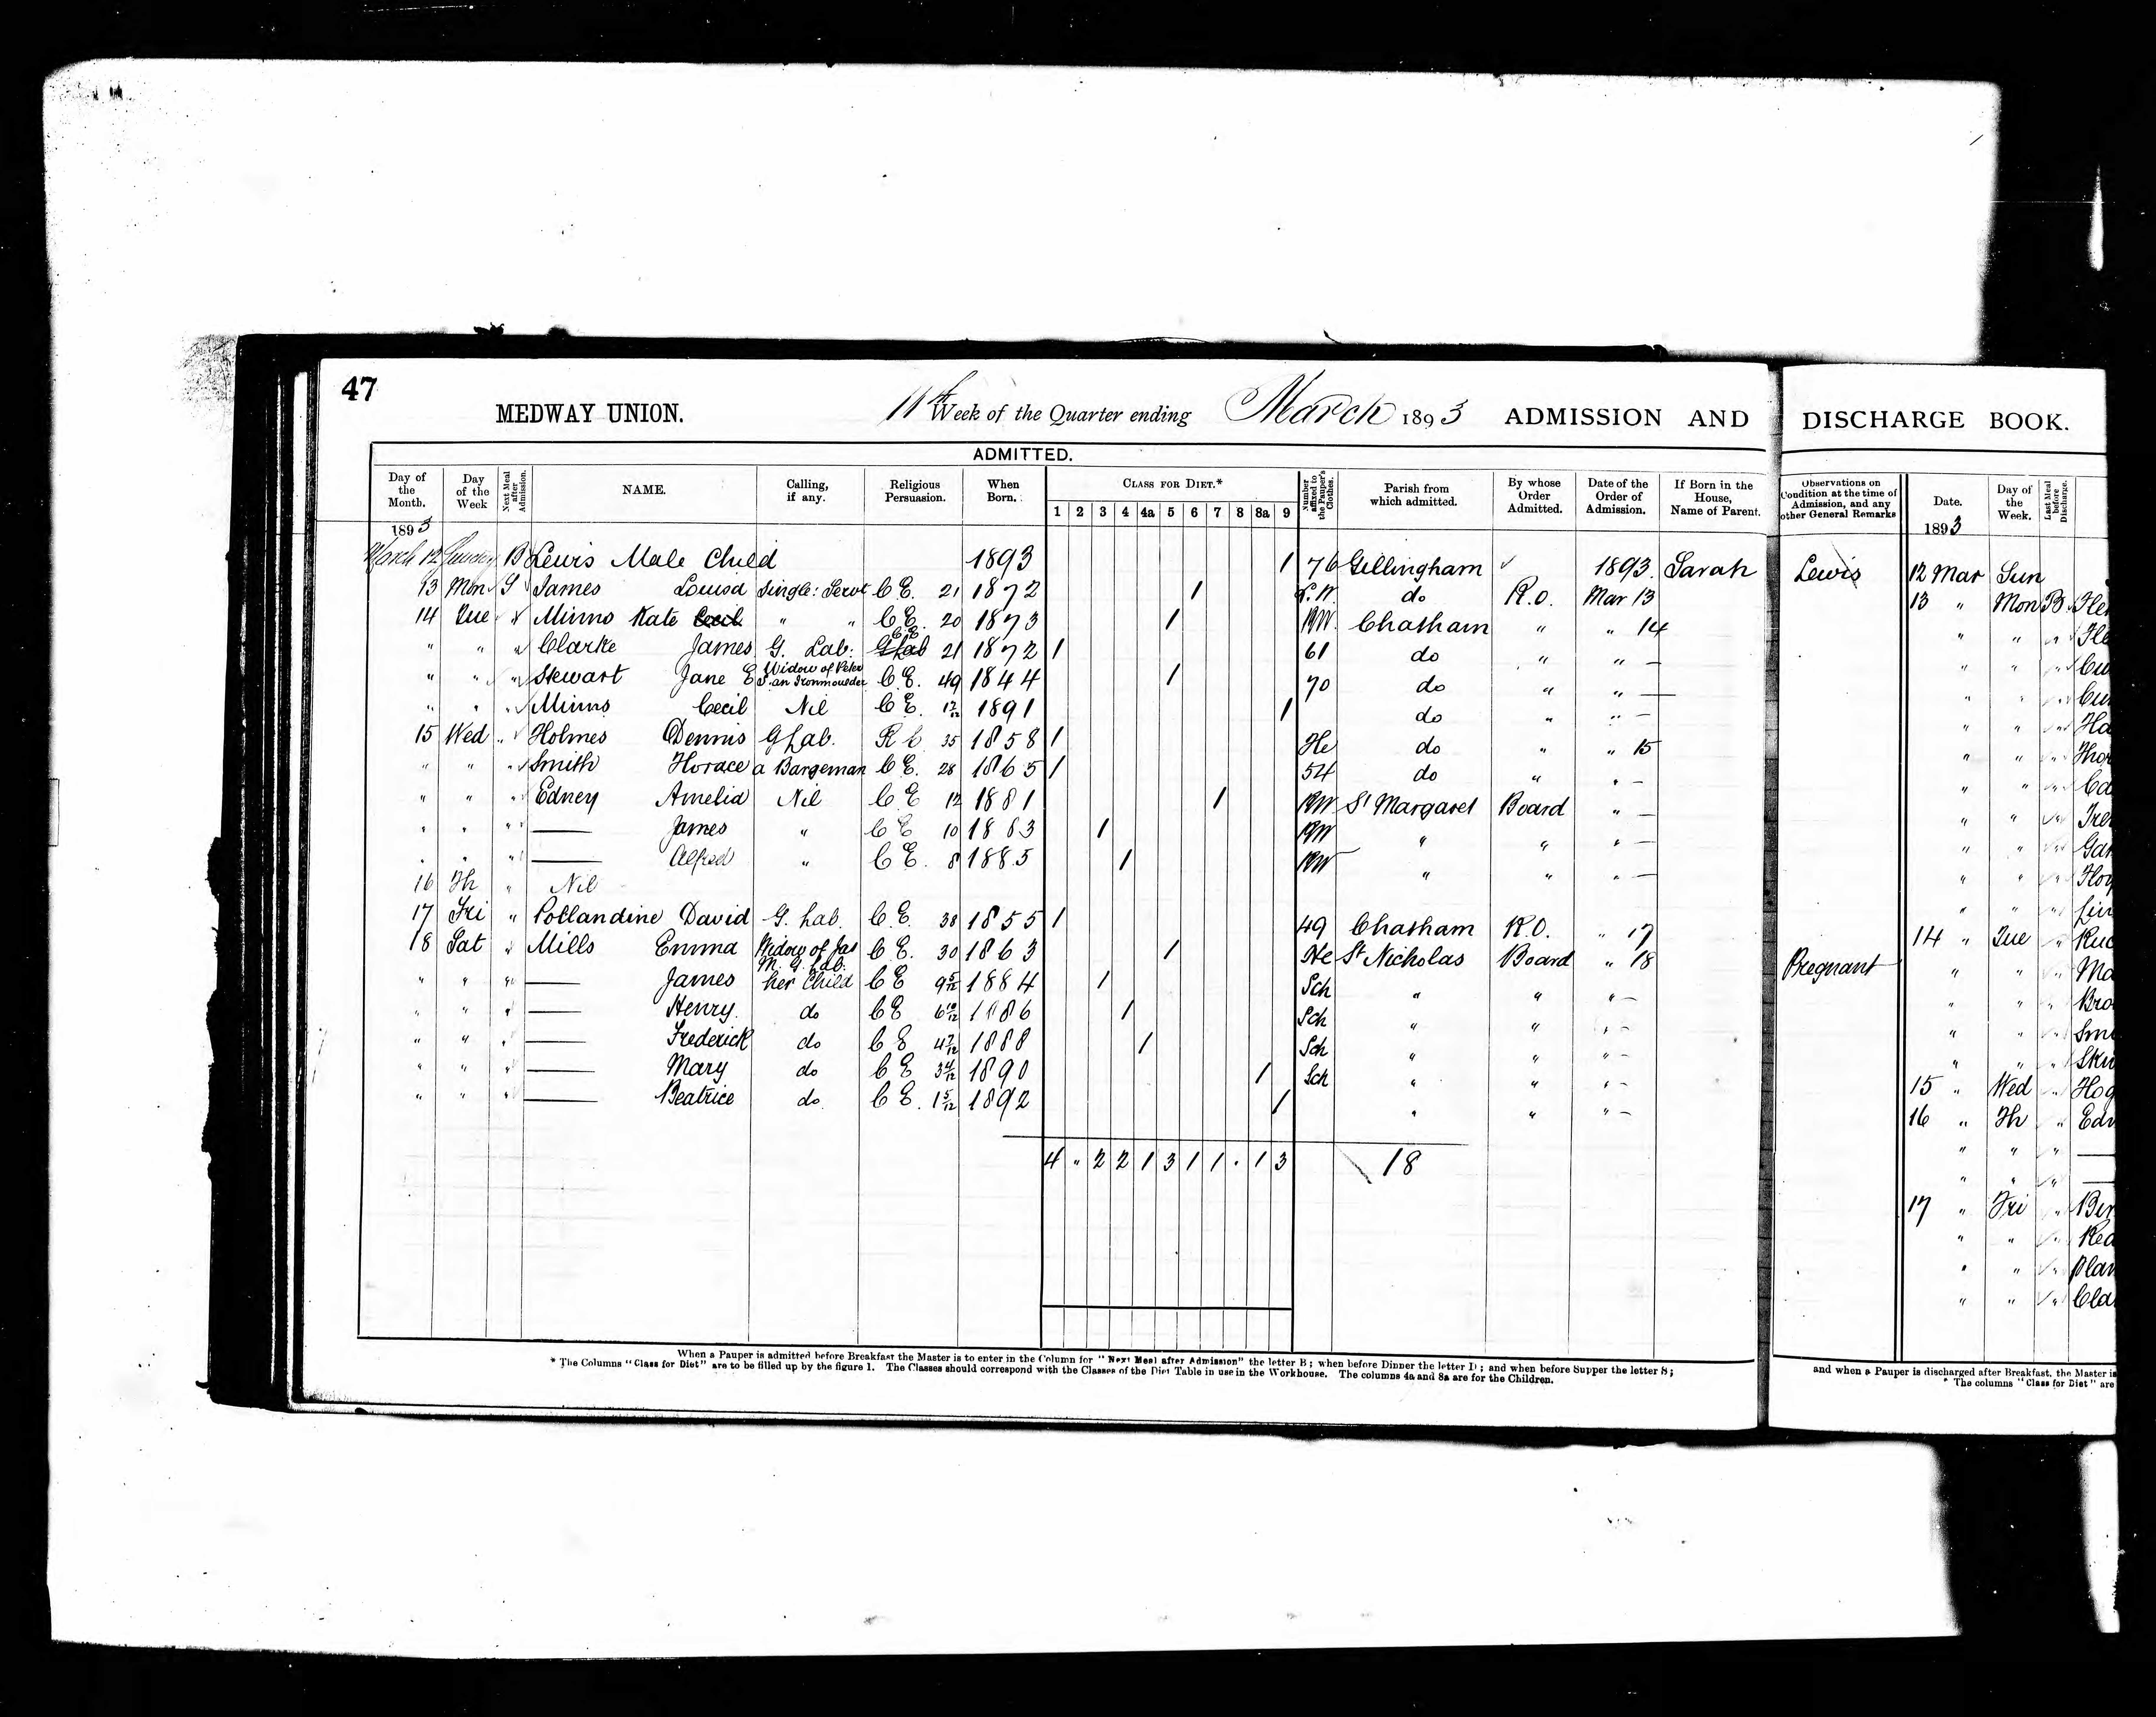 47
MEDWAY UNION. 11th Week of the Quarter ending March 1893 ADMISSION AND DISCHARGE BOOK.
ADMITTED.
Day of the Month. Day of the Week Next Meal after Admission. NAME. Calling, if any. Religious Persuasion. When Born. CLASS FOR DIET.* Number affixed to the Pauper's Clothes. Parish from which admitted. By whose Order Admitted. Date of the Order of Admission. If Born in the House, Name of Parent. Observations on Condition at the time of Admission, and any other General Remarks Date. Day of the Week. Last Meal before Discharge.
1 2 3 4 4a 5 6 7 8 8a 9
1893 1893
March 12 Sunday B Lewis Male Child 1893 1 76 Gillingham 1893. Sarah Lewis 12 Mar Sun
13 Mon S James Louisa Single: Servt C E. 21 1872 1 L.W. do R.O. Mar 13 13 " Mon B
14 Tue " Minns Kate Cecil " " C E. 20 1873 1 RW. Chatham " " 14
" " " Clarke James G. Lab: G Lab C E 21 1872 1 61 do " " —
" " " Stewart Jane E Widow of Peter S. an Ironmoulder C E. 49 1844 1 70 do " " —
" " " Minns Cecil Nil C E. 17/12 1891 1 do " " —
15 Wed " Holmes Dennis G Lab. R C 35 1858 1 He do " " 15
" " " Smith Horace a Bargeman C E. 28 1865 1 54 do " " —
" " " Edney Amelia Nil C E 12 1881 1 RW St Margaret Board " —
" " " —— James " C E 10 1883 1 RW " " " —
" " " —— Alfred " C E. 8 1885 1 RW " " " —
16 Th " Nil
17 Fri " Pollandine David G. Lab. C E. 38 1855 1 49 Chatham R.O. " 17
18 Sat " Mills Emma Widow of Jas M. G. Lab: C E. 30 1863 1 He St Nicholas Board " 18 Pregnant 14 " Tue "
" " " —— James her Child C E 9 5/12 1884 1 Sch " " " —
" " " —— Henry. do C E 6 10/12 1886 1 Sch " " " —
" " " —— Frederick do C E 4 7/12 1888 1 Sch " " " —
" " " —— Mary do C E 3 4/12 1890 1 Sch " " " — 15 " Wed
" " " —— Beatrice do. C E. 1 5/12 1892 1 " " " — 16 " Th "
4 " 2 2 1 3 1 1 . 1 3 18
17 " Fri "
When a Pauper is admitted before Breakfast the Master is to enter in the Column for "Next Meal after Admission" the letter B; when before Dinner the letter D; and when before Supper the letter S;
* The Columns "Class for Diet" are to be filled up by the figure 1. The Classes should correspond with the Classes of the Diet Table in use in the Workhouse. The columns 4a and 8a are for the Children.
and when a Pauper is discharged after Breakfast, the Master is
* The columns "Class for Diet" are